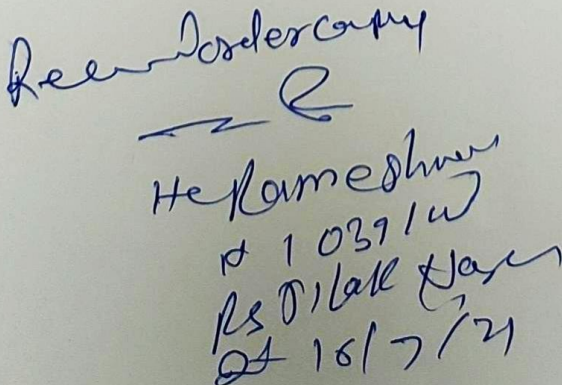 Recd order copy
Hc Rameshwar
N 1039/W
PS Tilak Nagar
Dt 16/7/21